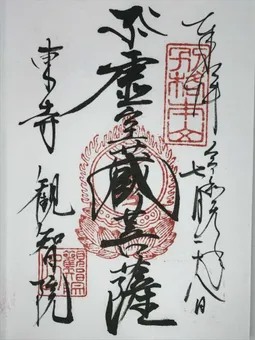 奉拝
別格本山
令和元年
七月二十八日
虚空蔵菩薩
東寺 観智院